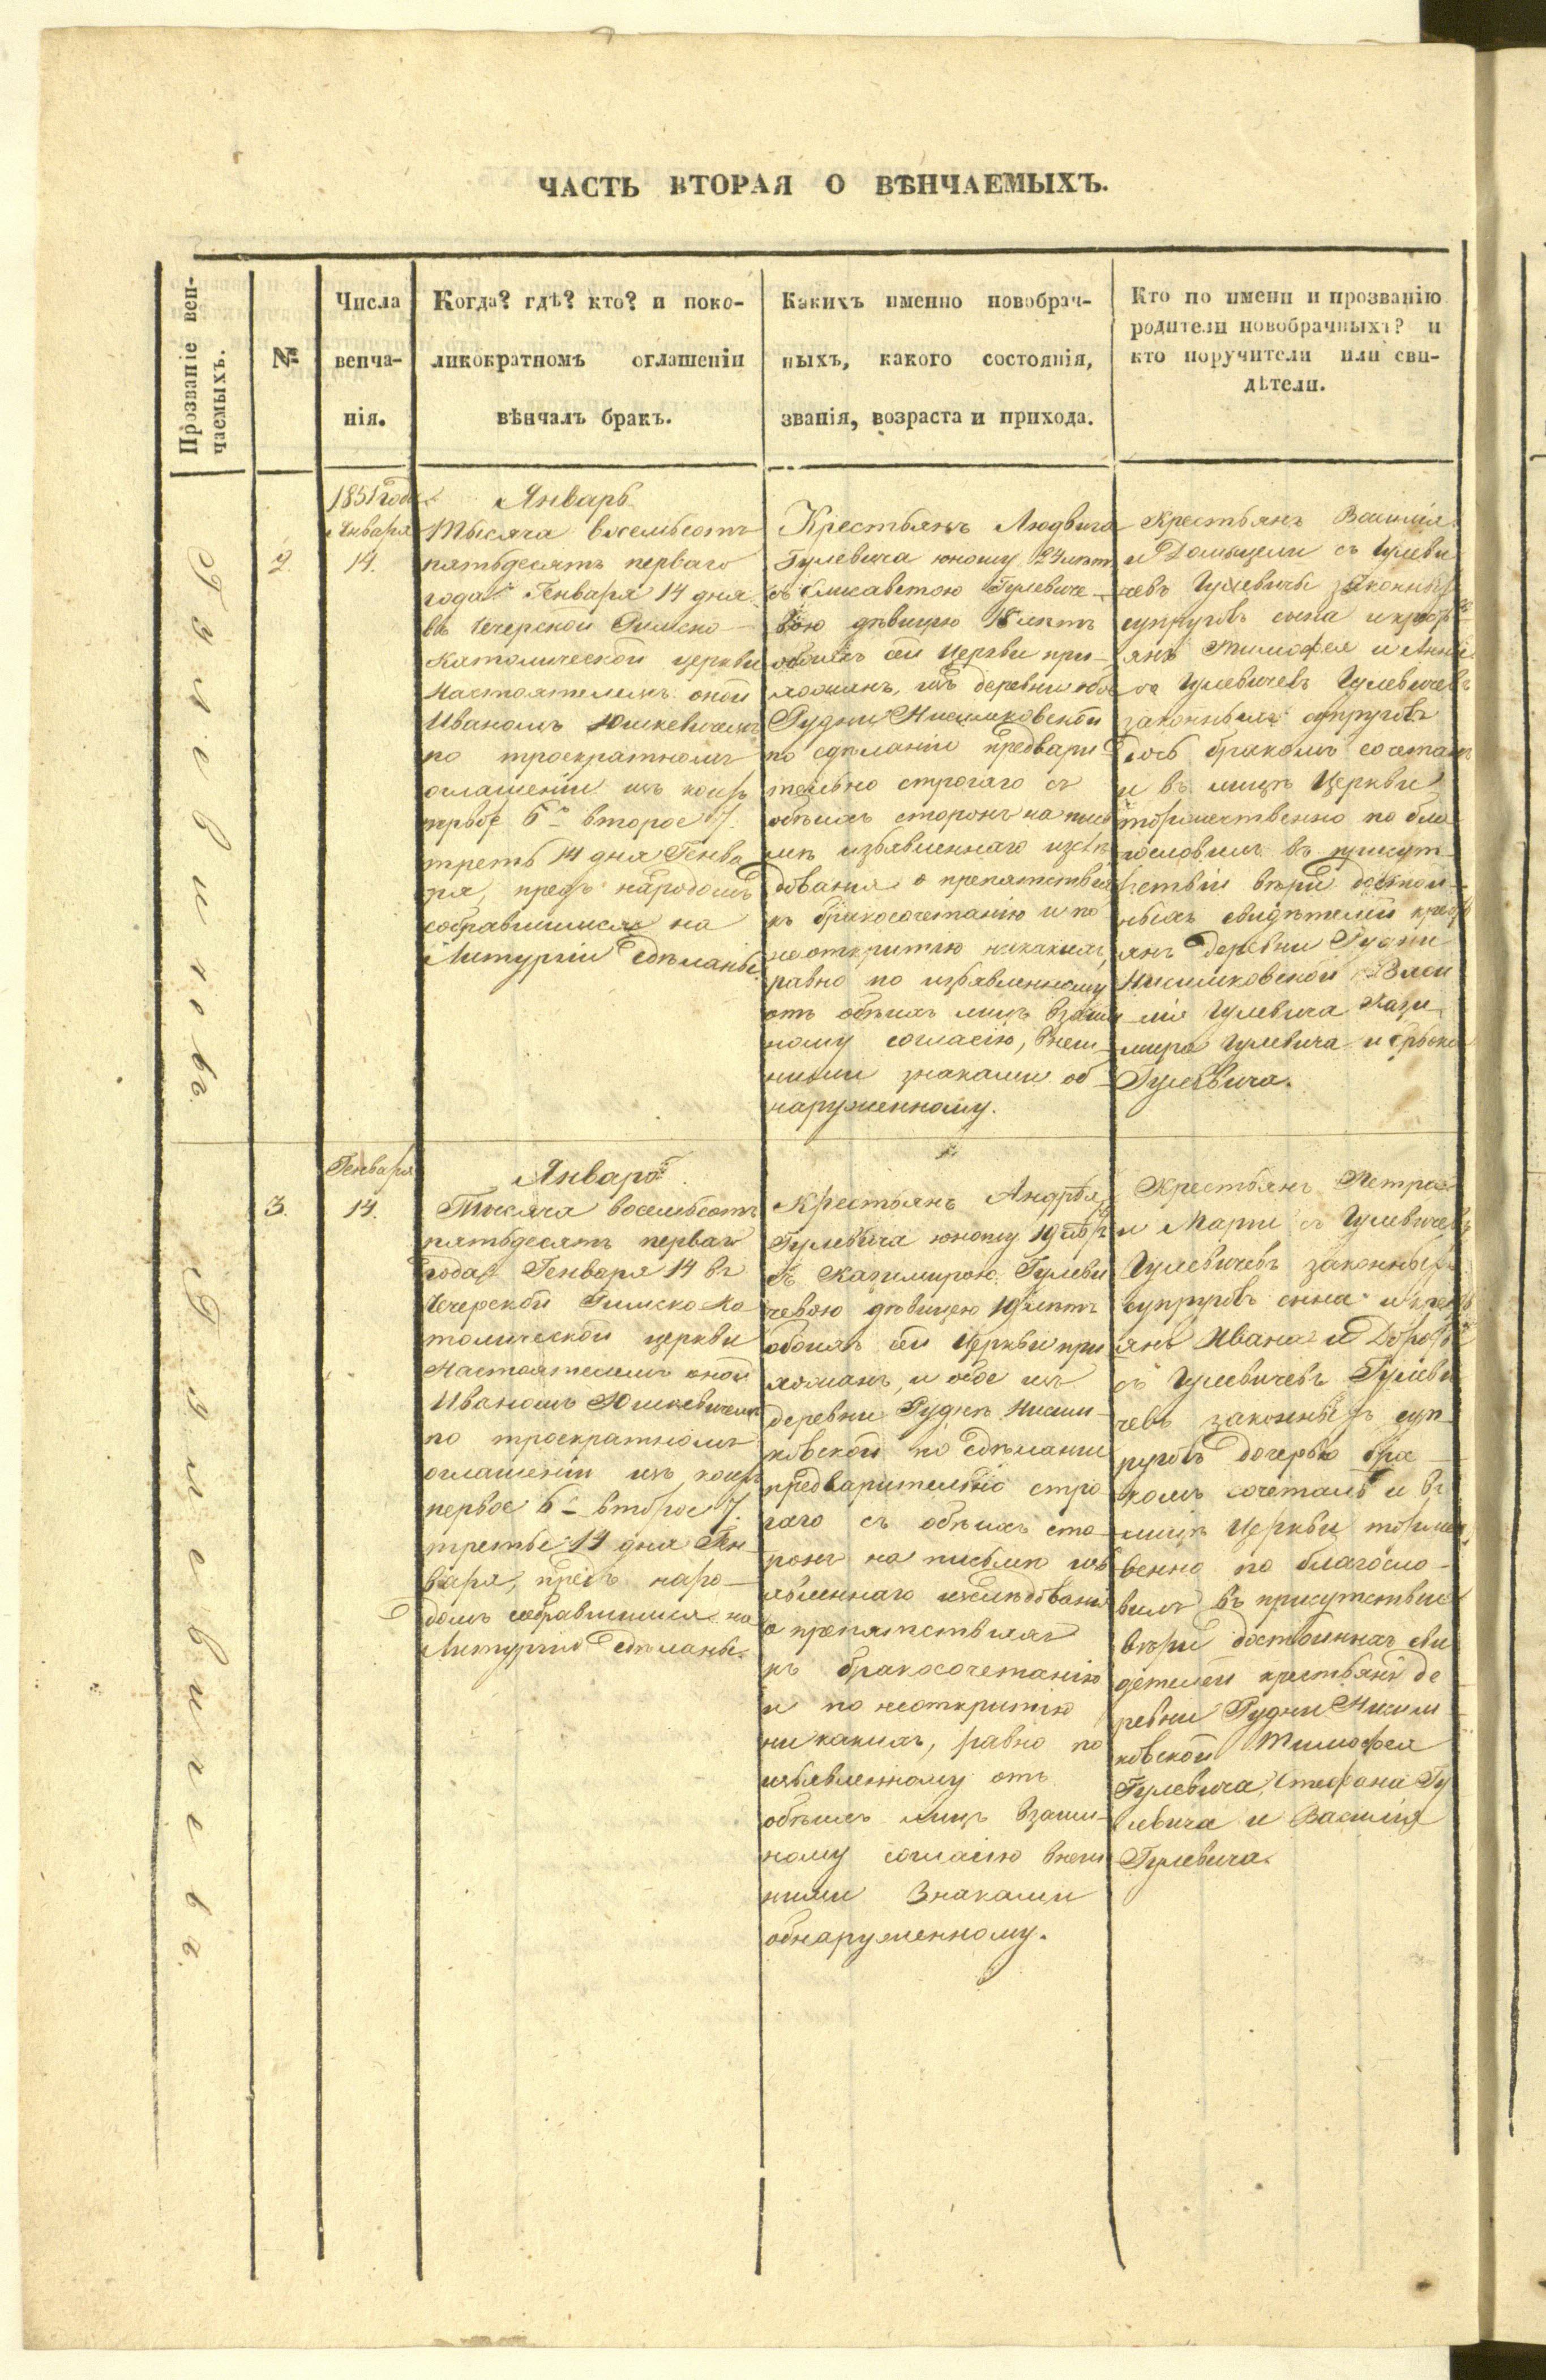 ЧАСТЬ ВТОРАЯ О ВѢНЧАЕМЫХЪ.
Прозваніе вѣн-
чаемыхъ.
№
Числа
вѣнча-
нія.
Когда? гдѣ? кто? и поко-
ликократномъ оглашеніи
вѣнчалъ бракъ.
Какихъ именно новобрач-
ныхъ, какого состоянія,
званія, возраста и прихода.
Кто по имени и прозванію
родители новобрачныхъ? и
кто поручители или сви-
дѣтели.
Гулевичовъ
2.
1851 года
Января
14.
Январь
Тысяча восемьсотъ
пятьдесятъ перваго
года Генваря 14 дня
въ Чечерской Римско-
Католической церкви
Настоятелемъ оной
Иваномъ Юшкевичемъ
по троекратномъ
оглашеніи изъ коихъ
первое 6го второе 7.
треть 14 дня Генва
ря, предъ народомъ
собравшимся на
Литургіи сдѣланы.
Крестьянъ Людвига
Гулевича юношу 24 лѣт
съ Елисаветою Гулевиче-
вою дѣвицею 18 лѣтъ
обоихъ сей Церкви при-
хожанъ, изъ деревни
Рудни Нисимковской
по сдѣланіи предвари
тельно строгаго съ
обѣихъ сторонъ на пись
мѣ изъявленнаго изслѣ
дованія о препятствіях
къ бракосочетанію и по
неоткрытію никакихъ,
равно по изъявленному
отъ обѣихъ лицъ взаим
ному согласію, внеш-
ними знаками об-
наруженному.
Крестьянъ Василія
и Домицели съ Гулеви
чевъ Гулевичъ законных
супруговъ сына и крест
янъ Тимофея и Анны
съ Гулевичевъ Гулевичевъ
законныхъ супруговъ
дочь бракомъ сочеталъ
и въ лицѣ Церкви
торжественно по бла
гословилъ въ присут-
ствіи вѣры достой-
ныхъ свидѣтелей крест
янъ деревни Рудни
Нисимковской Васи
лія Гулевича Кази
мира Гулевича и
Гулевича.
Гулевичева
3.
Генваря
14.
Январь.
Тысяча восемьсотъ
пятьдесятъ перваго
года Генваря 14 въ
Чечерской Римско Ка
толической церкви
Настоятелемъ оной
Иваномъ Юшкевичемъ
по троекратномъ
оглашеніи изъ коихъ
первое 6го второе 7.
третье 14 дня Ген-
варя, предъ наро-
домъ собравшимся на
Литургіи сдѣланы.
Крестьянъ Андрея
Гулевича юношу 19 лѣтъ
съ Казимирою Гулеви
чевою дѣвицею 19 лѣтъ
обоихъ сей Церкви при
хожанъ, и обое изъ
деревни Рудни Нисим-
ковской по сдѣланіи
предварительно стро
гаго съ обѣихъ сто-
ронъ на письмѣ изъ
явленнаго изслѣдованія
о препятствіяхъ
къ бракосочетанію
и по неоткрытію
никакихъ, равно по
изъявленному отъ
обѣихъ лицъ взаим-
ному согласію внеш
ними знаками
обнаруженному.
Крестьянъ Петра
и Маріи съ Гулевичевъ
Гулевичевъ законныхъ
супруговъ сына и крест
янъ Ивана и Дорофеи
съ Гулевичевъ Гулеви
чевъ законныхъ суп-
руговъ дочерью бра-
комъ сочеталъ и въ
лицѣ Церкви торжест
венно по благосло-
вилъ въ присутствіи
вѣры достойныхъ сви
дѣтелей крестьянъ де
ревни Рудни Нисим
ковской Тимофея
Гулевича, Стефана Гу
левича и Василія
Гулевича.